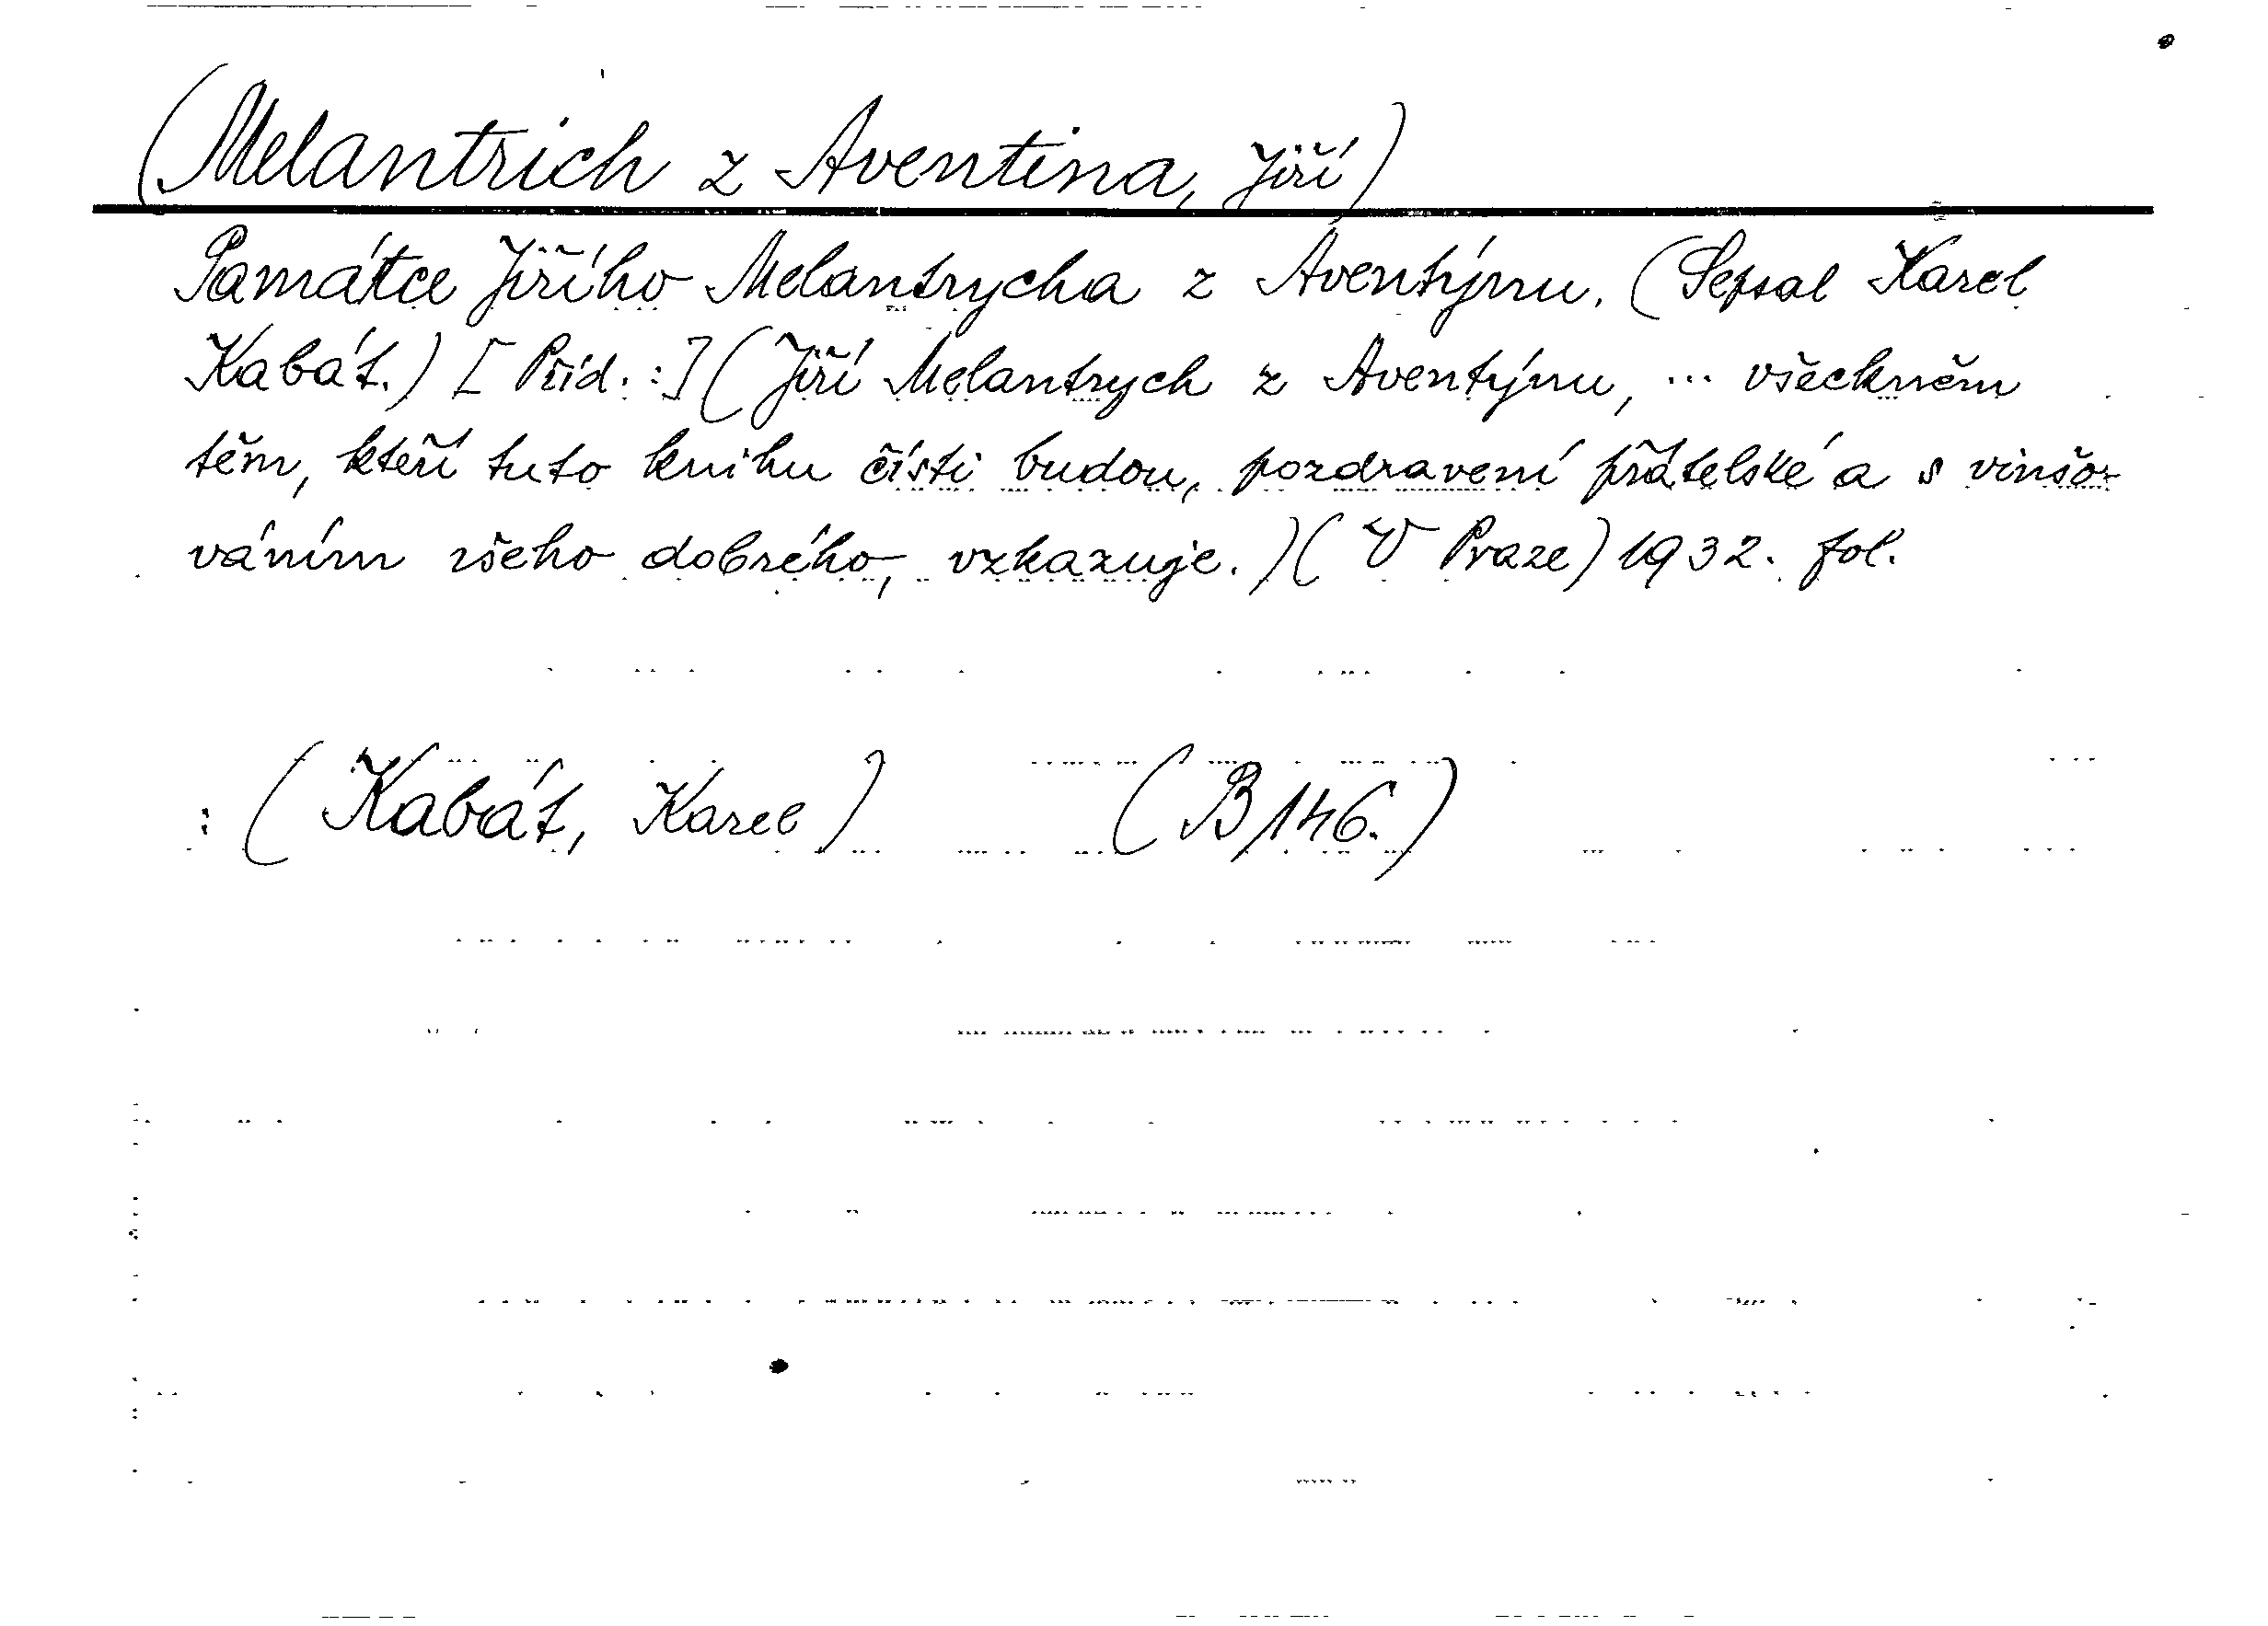 (Melantrich z Aventina, Jiří)
Památce Jiřího Melantrycha z Aventýnu. (Sepsal Karel
Kabát.) [Přid.:] (Jiří Melantrych z Aventýnu, ... všeckněm
těm, kteří tuto knihu čísti budou, pozdravení přátelské a s vinšo-
váním všeho dobrého, vzkazuje.) (V Praze) 1932. fol.
: (Kabát, Karel) (B 146.)